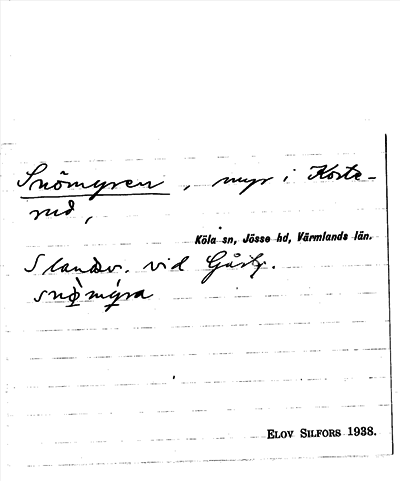 Snömyren, myr i Korte-
rud,
Köla sn, Jösse hd, Värmlands län.
S landsv. vid
snö̀mýra
ELOV SILFORS 1938.